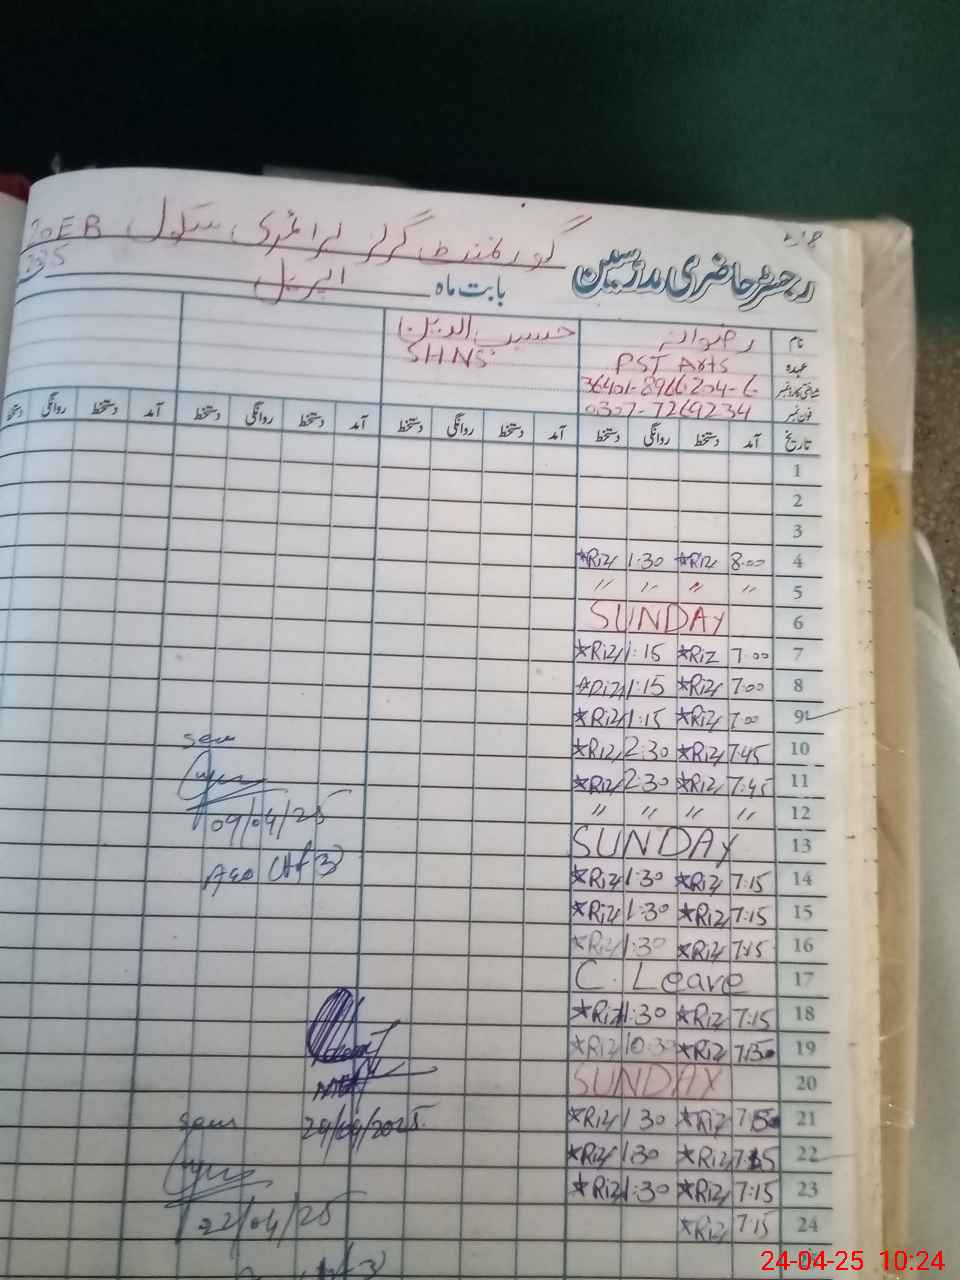 218
گورنمنٹ گرلز پرائمری سکول 20EB
رجسٹر حاضری مدرسین
بابت ماہ اپریل 2025
نام رضوانہ حسیب الدین
عہدہ PST Arts SHNS
شناختی کارڈ نمبر 36401-8966204-6
فون نمبر 0307-7269234
تاریخ آمد دستخط روانگی دستخط آمد دستخط روانگی دستخط آمد دستخط روانگی دستخط آمد دستخط روانگی دستخط
1
2
3
*Riz 1:30 *Riz 8:00 4
" " " " 5
SUNDAY 6
*Riz 1:15 *Riz 7:00 7
*Riz 1:15 *Riz 7:00 8
*Riz 1:15 *Riz 7:00 9
seen
*Riz 2:30 *Riz 7:45 10
*Riz 2:30 *Riz 7:45 11
09/04/25 " " " " 12
SUNDAY 13
Aeo *Riz 1:30 *Riz 7:15 14
*Riz 1:30 *Riz 7:15 15
*Riz 1:30 *Riz 7:15 16
C. Leave 17
*Riz 1:30 *Riz 7:15 18
*Riz 10:30 *Riz 19
SUNDAY 20
seen *Riz 1:30 *Riz 21
*Riz 1:30 *Riz 7:15 22
*Riz 1:30 *Riz 7:15 23
22/04/25 *Riz 7:15 24
24-04-25 10:24